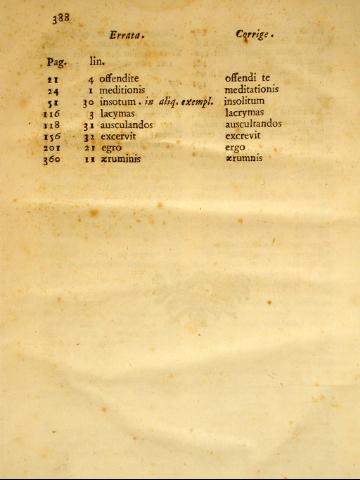 388
Errata. Corrige.
Pag. lin.
21 4 offendite offendi te
24 1 meditionis meditationis
51 30 insotum. in aliq. exempl. insolitum
116 3 lacymas lacrymas
118 31 ausculandos auscultandos
156 32 excervit excrevit
201 21 egro ergo
360 11 æruminis ærumnis